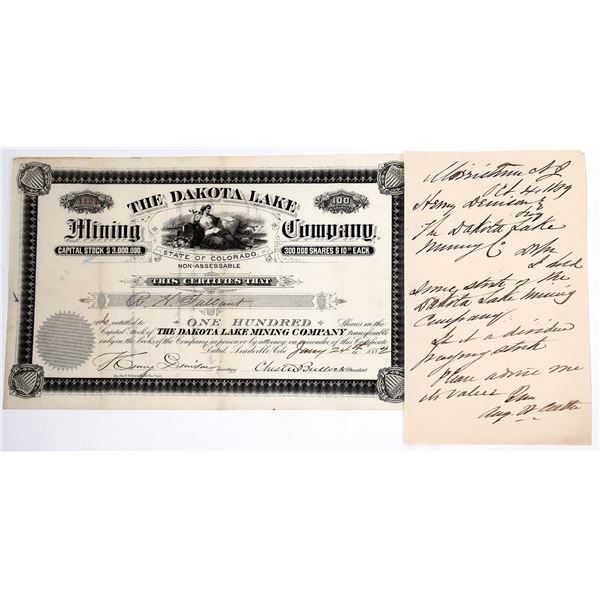 THE DAKOTA LAKE
Mining Company.
113
100
CAPITAL STOCK $ 3.000.000
STATE OF COLORADO.
300 000 SHARES $ 10.00 EACH.
NON-ASSESSABLE
THIS CERTIFIES THAT
R. H. Tallant
is entitled to ONE HUNDRED Shares in the
Capital Stock of THE DAKOTA LAKE MINING COMPANY transferable
only on the books of the Company in person or by attorney on surrender of this Certificate
Dated, Leadville, Colo. Jany 24th 1882
Henry Denison Secretary Chester Bullock President
Morristown NJ
Oct 24 1889
Henry Denison
The Dakota Lake
Mining Co
Dr Sir
I
stock of the
Dakota Lake Mining
Company.
Is it a dividend
paying stock
Please advise me
its value
Aug.